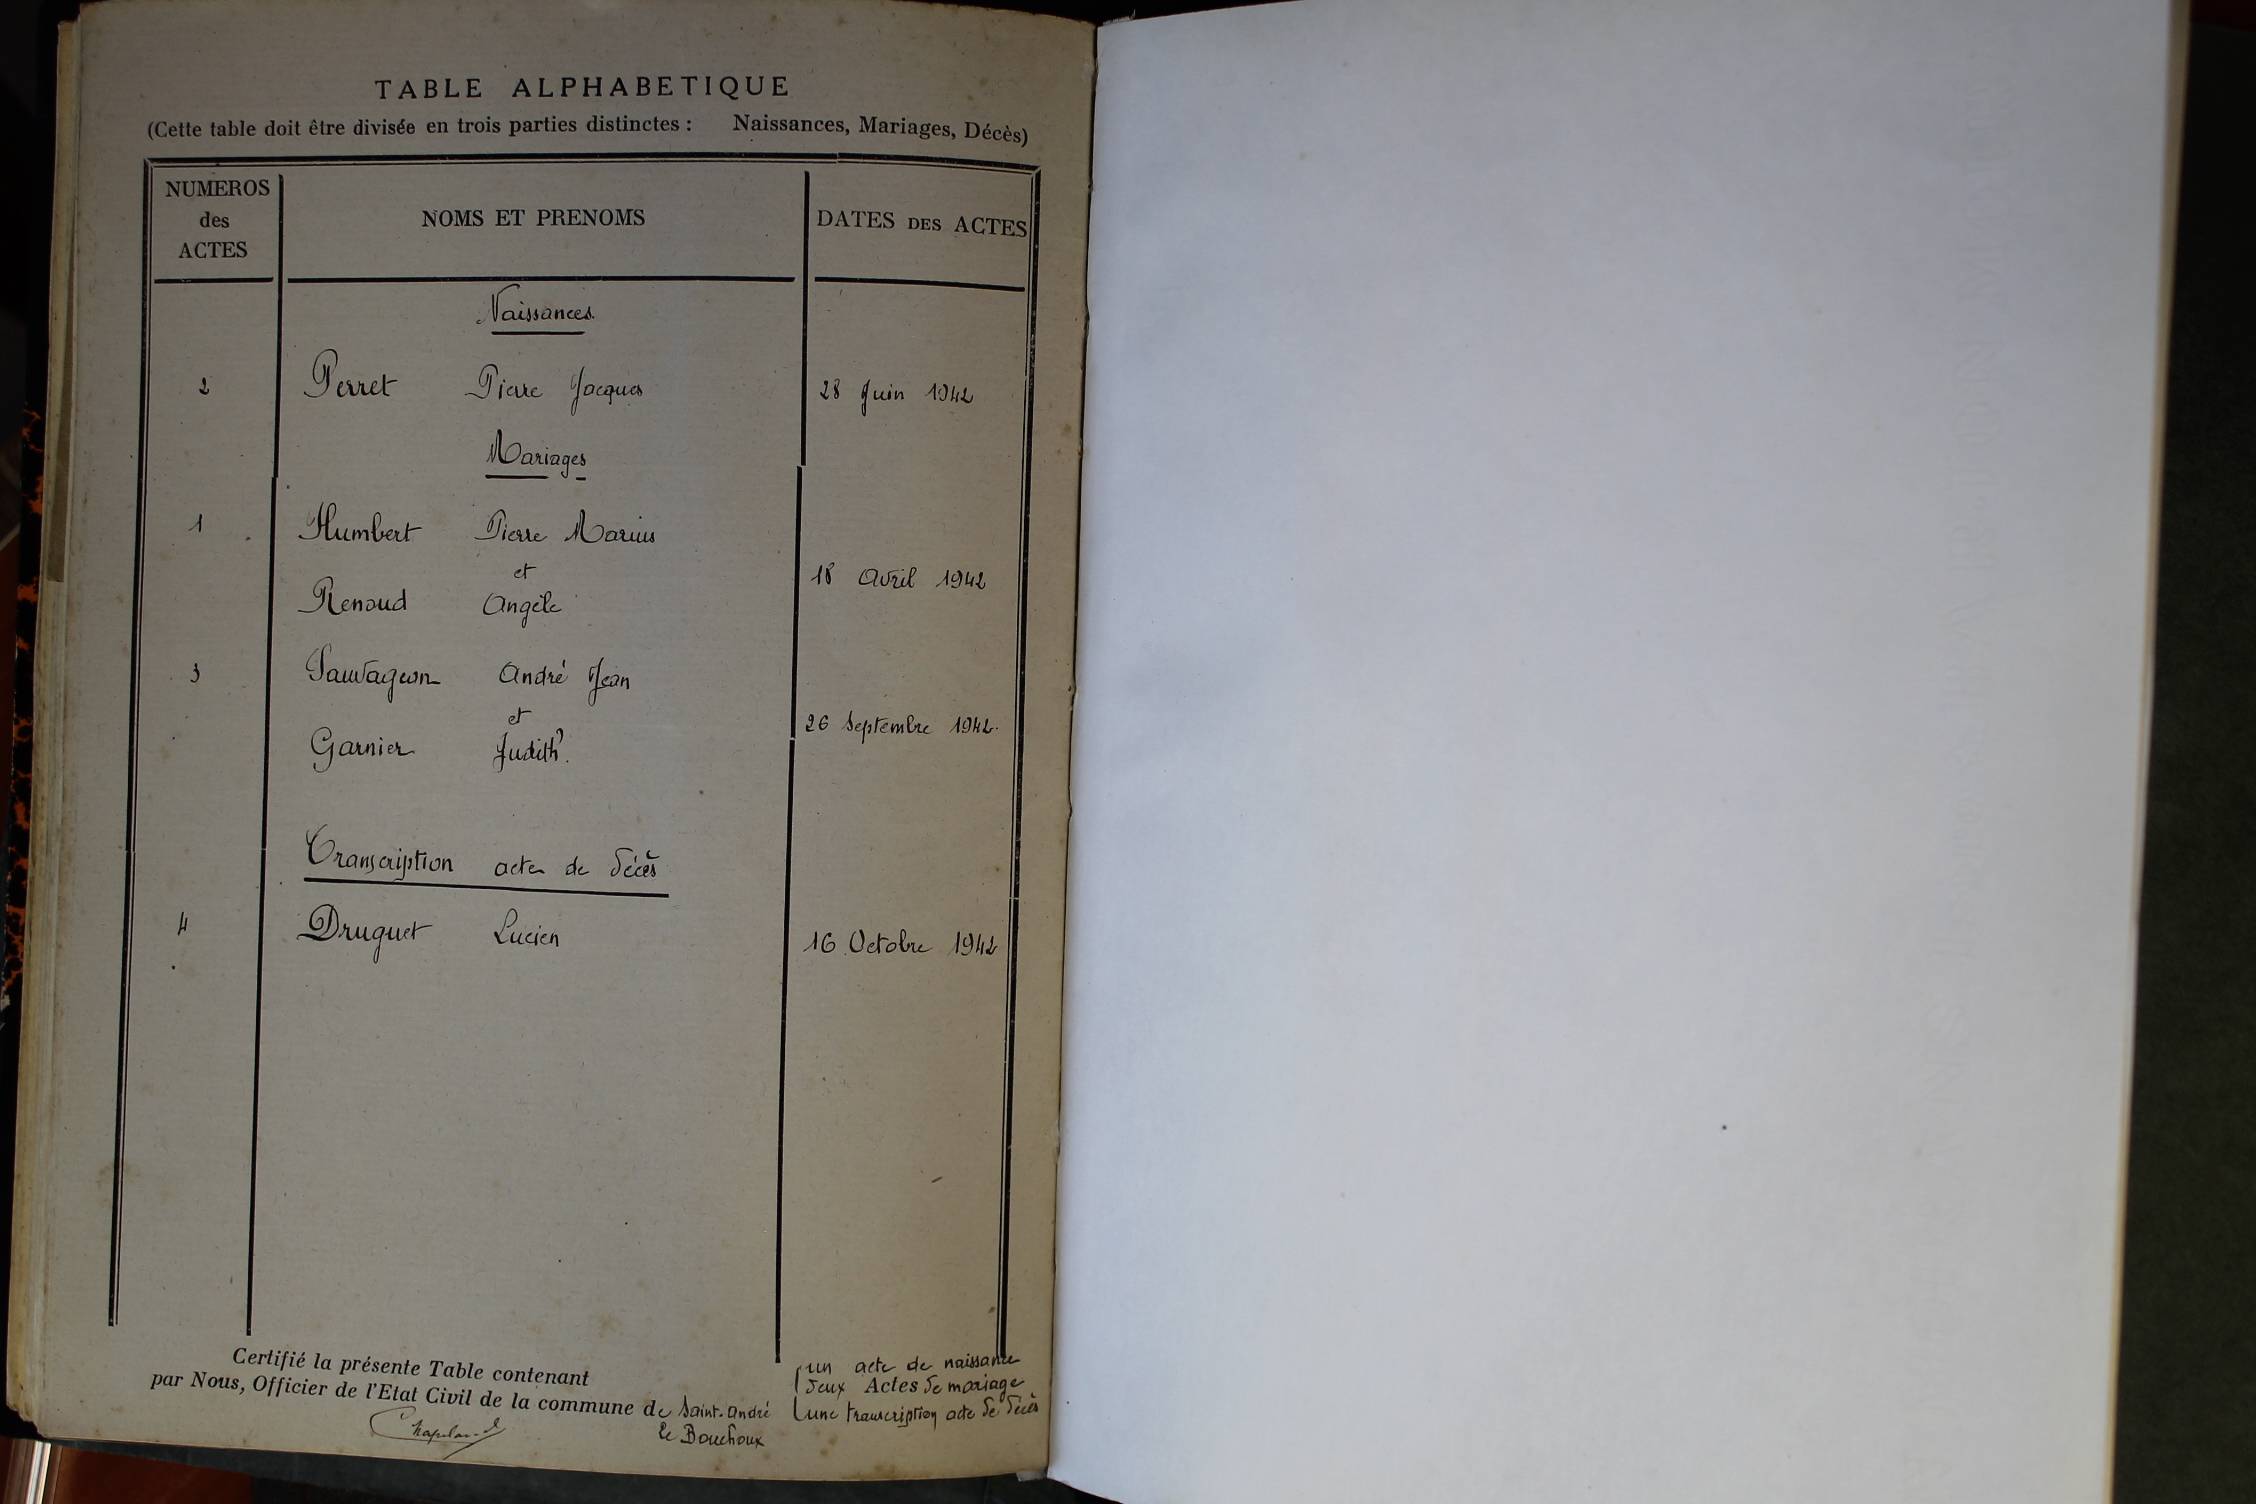 TABLE ALPHABETIQUE
(Cette table doit être divisée en trois parties distinctes : Naissances, Mariages, Décès)
NUMEROS
des
ACTES
NOMS ET PRENOMS
DATES DES ACTES
Naissances
2 Perret Pierre Jacques 28 Juin 1942
Mariages
1 Humbert Pierre Marius
et
18 Avril 1942
Renoud Angèle
3 Sauvageon André Jean
et
26 Septembre 1942.
Garnier Judith.
Transcription acte de décès
4 Druguet Lucien 16 Octobre 1942
Certifié la présente Table contenant
un acte de naissance
deux Actes de mariage
une transcription acte de décès
par Nous, Officier de l'Etat Civil de la commune de Saint-André
le Bouchoux